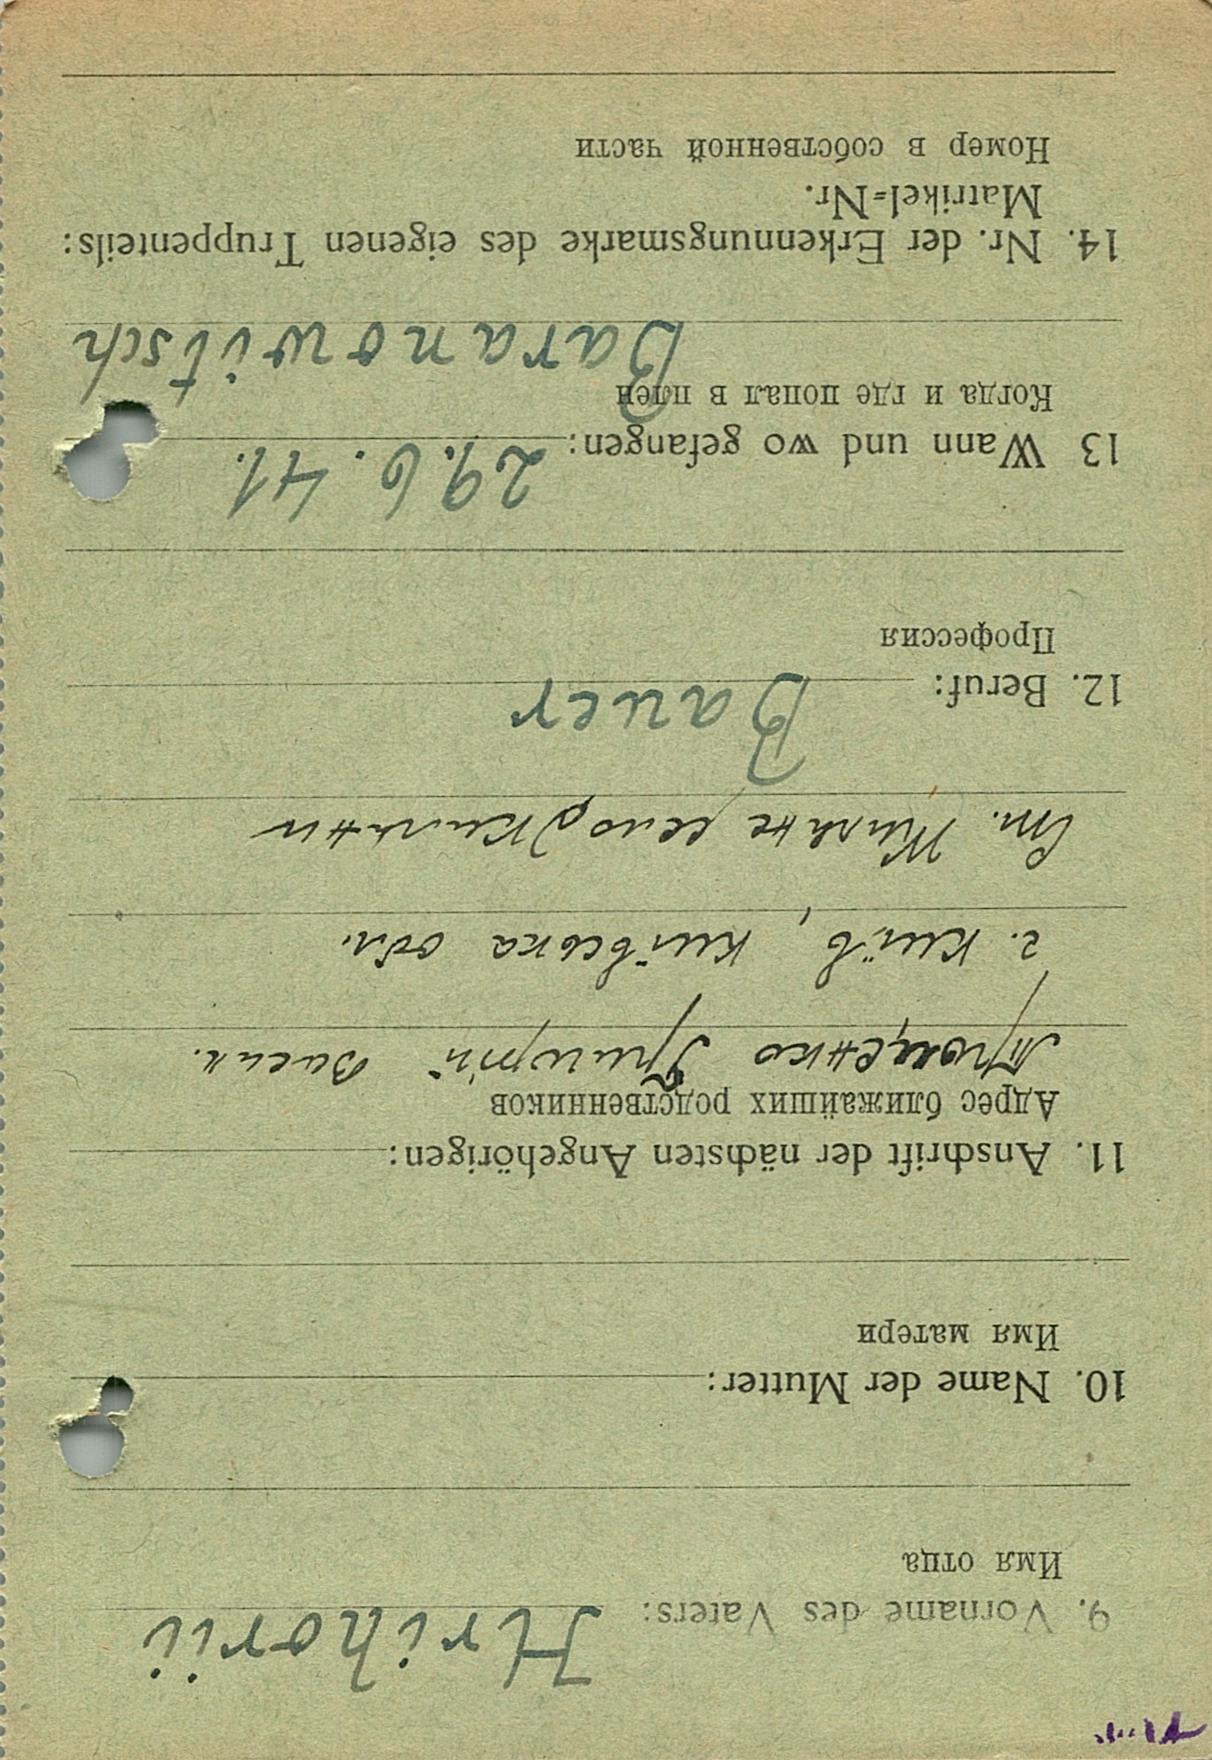 9. Vorname des Vaters: Hrihorii
Имя отца
10. Name der Mutter:
Имя матери
11. Anschrift der nächsten Angehörigen:
Адрес ближайших родственников
Трощенко Григорій Васил.
г. Київ, київська обл.
Ст. село
12. Beruf: Bauer
Профессия
13 Wann und wo gefangen: 29.6.41.
Когда и где попал в плен
Baranowitsch
14. Nr. der Erkennungsmarke des eigenen Truppenteils:
Matrikel=Nr.
Номер в собственной части